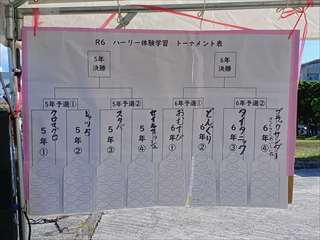 R6 ハーリー体験学習 トーナメント表
5年
決勝
6年
決勝
5年予選①
5年予選②
6年予選①
6年予選②
クロマグロ
5年①
5年②
スタバ
5年③
5年④
おむすび
6年①
どんぐり
6年②
タイタニック
6年③
ブラックサンダー
6年④